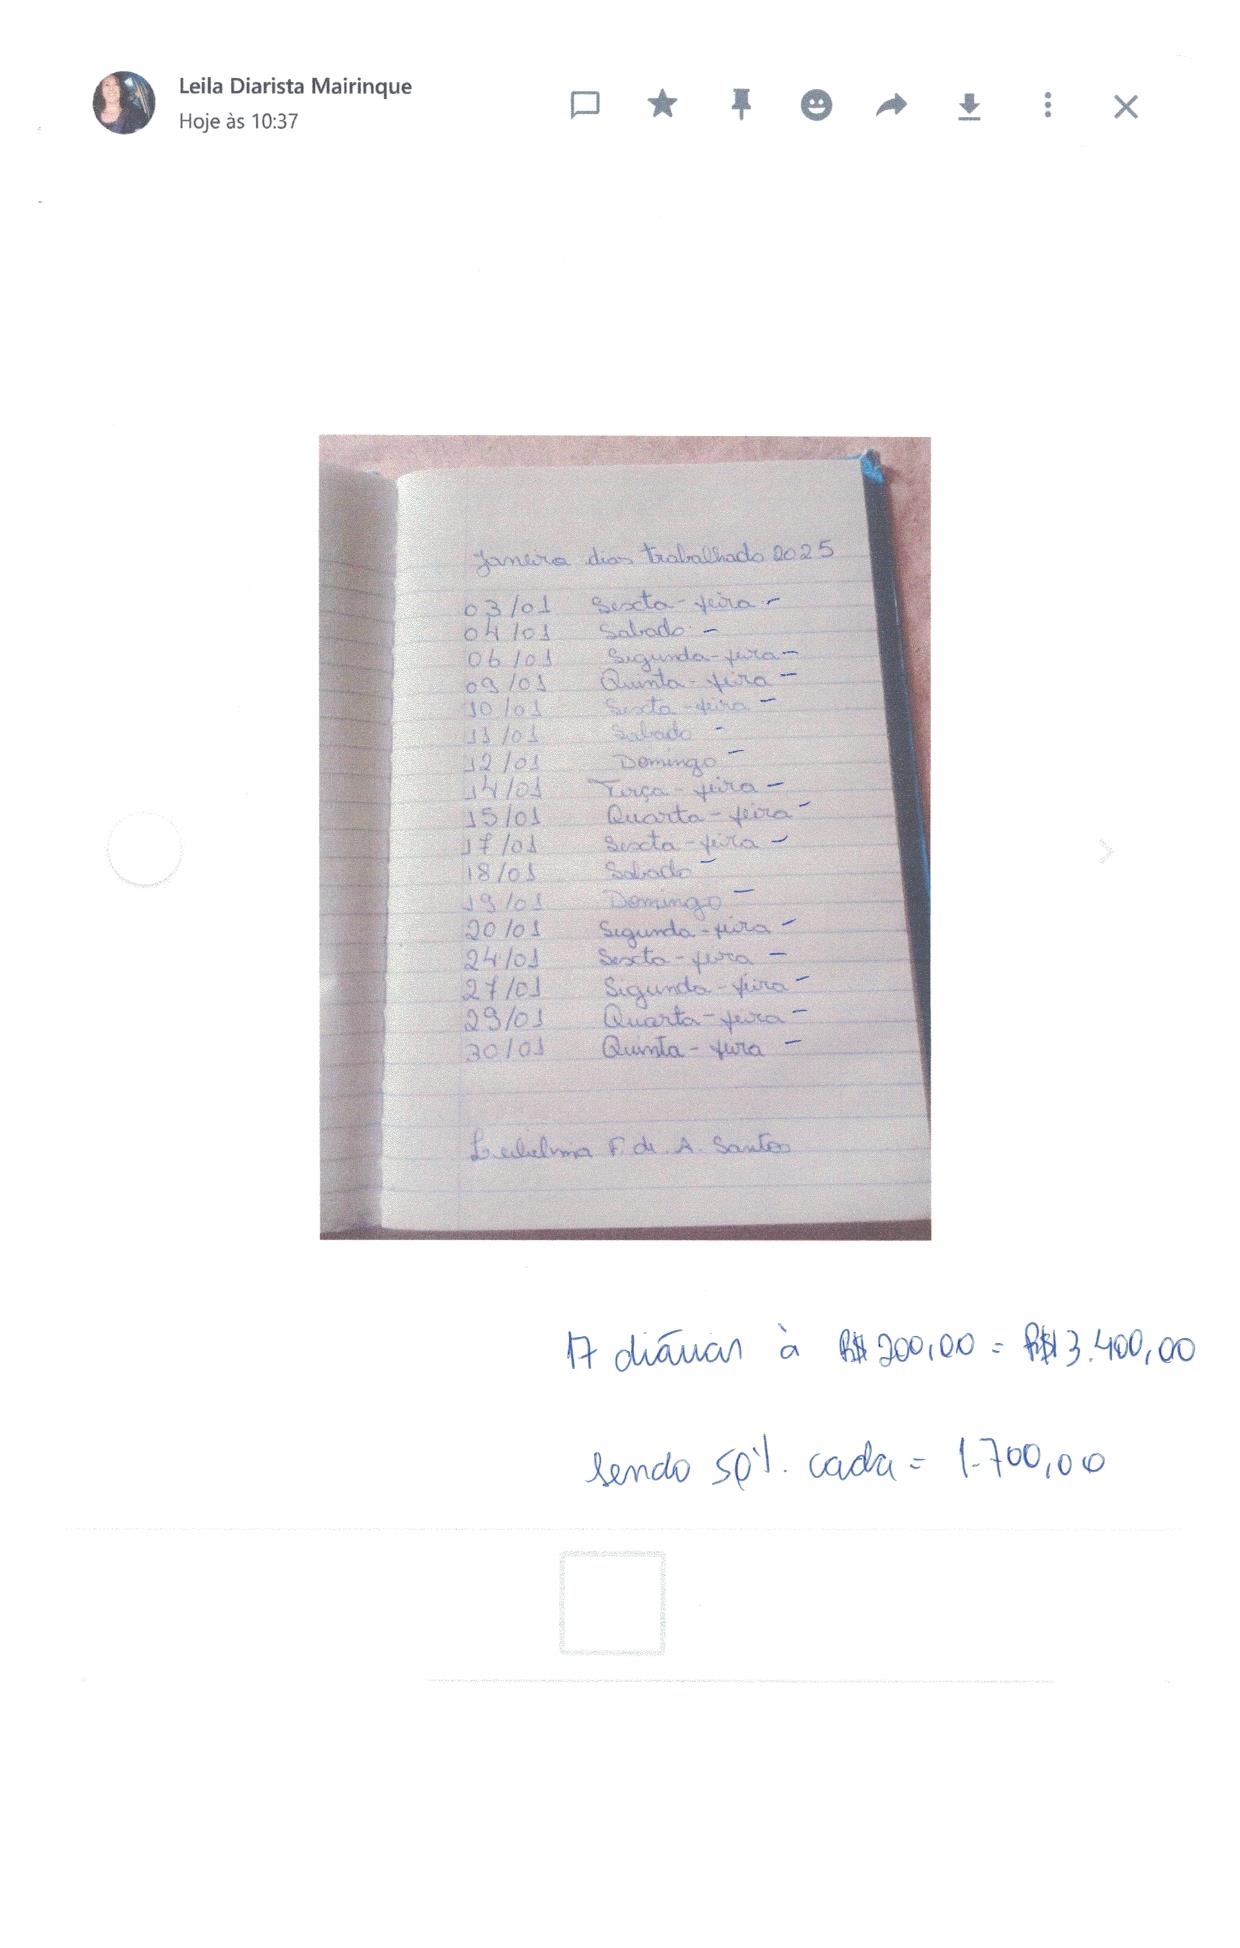 Leila Diarista Mairinque
Hoje às 10:37
Janeiro dias trabalhado 2025
03/01 Sexta-feira -
04/01 Sabado -
06/01 Segunda-feira -
09/01 Quinta-feira -
10/01 Sexta-feira -
11/01 Sabado -
12/01 Domingo -
14/01 Terça-feira -
15/01 Quarta-feira -
17/01 Sexta-feira -
18/01 Sabado -
19/01 Domingo -
20/01 Segunda-feira -
24/01 Sexta-feira -
27/01 Segunda-feira -
29/01 Quarta-feira -
30/01 Quinta-feira -
F. de A. Santos
17 diárias à R$ 200,00 = R$ 3.400,00
sendo 50% cada = 1.700,00